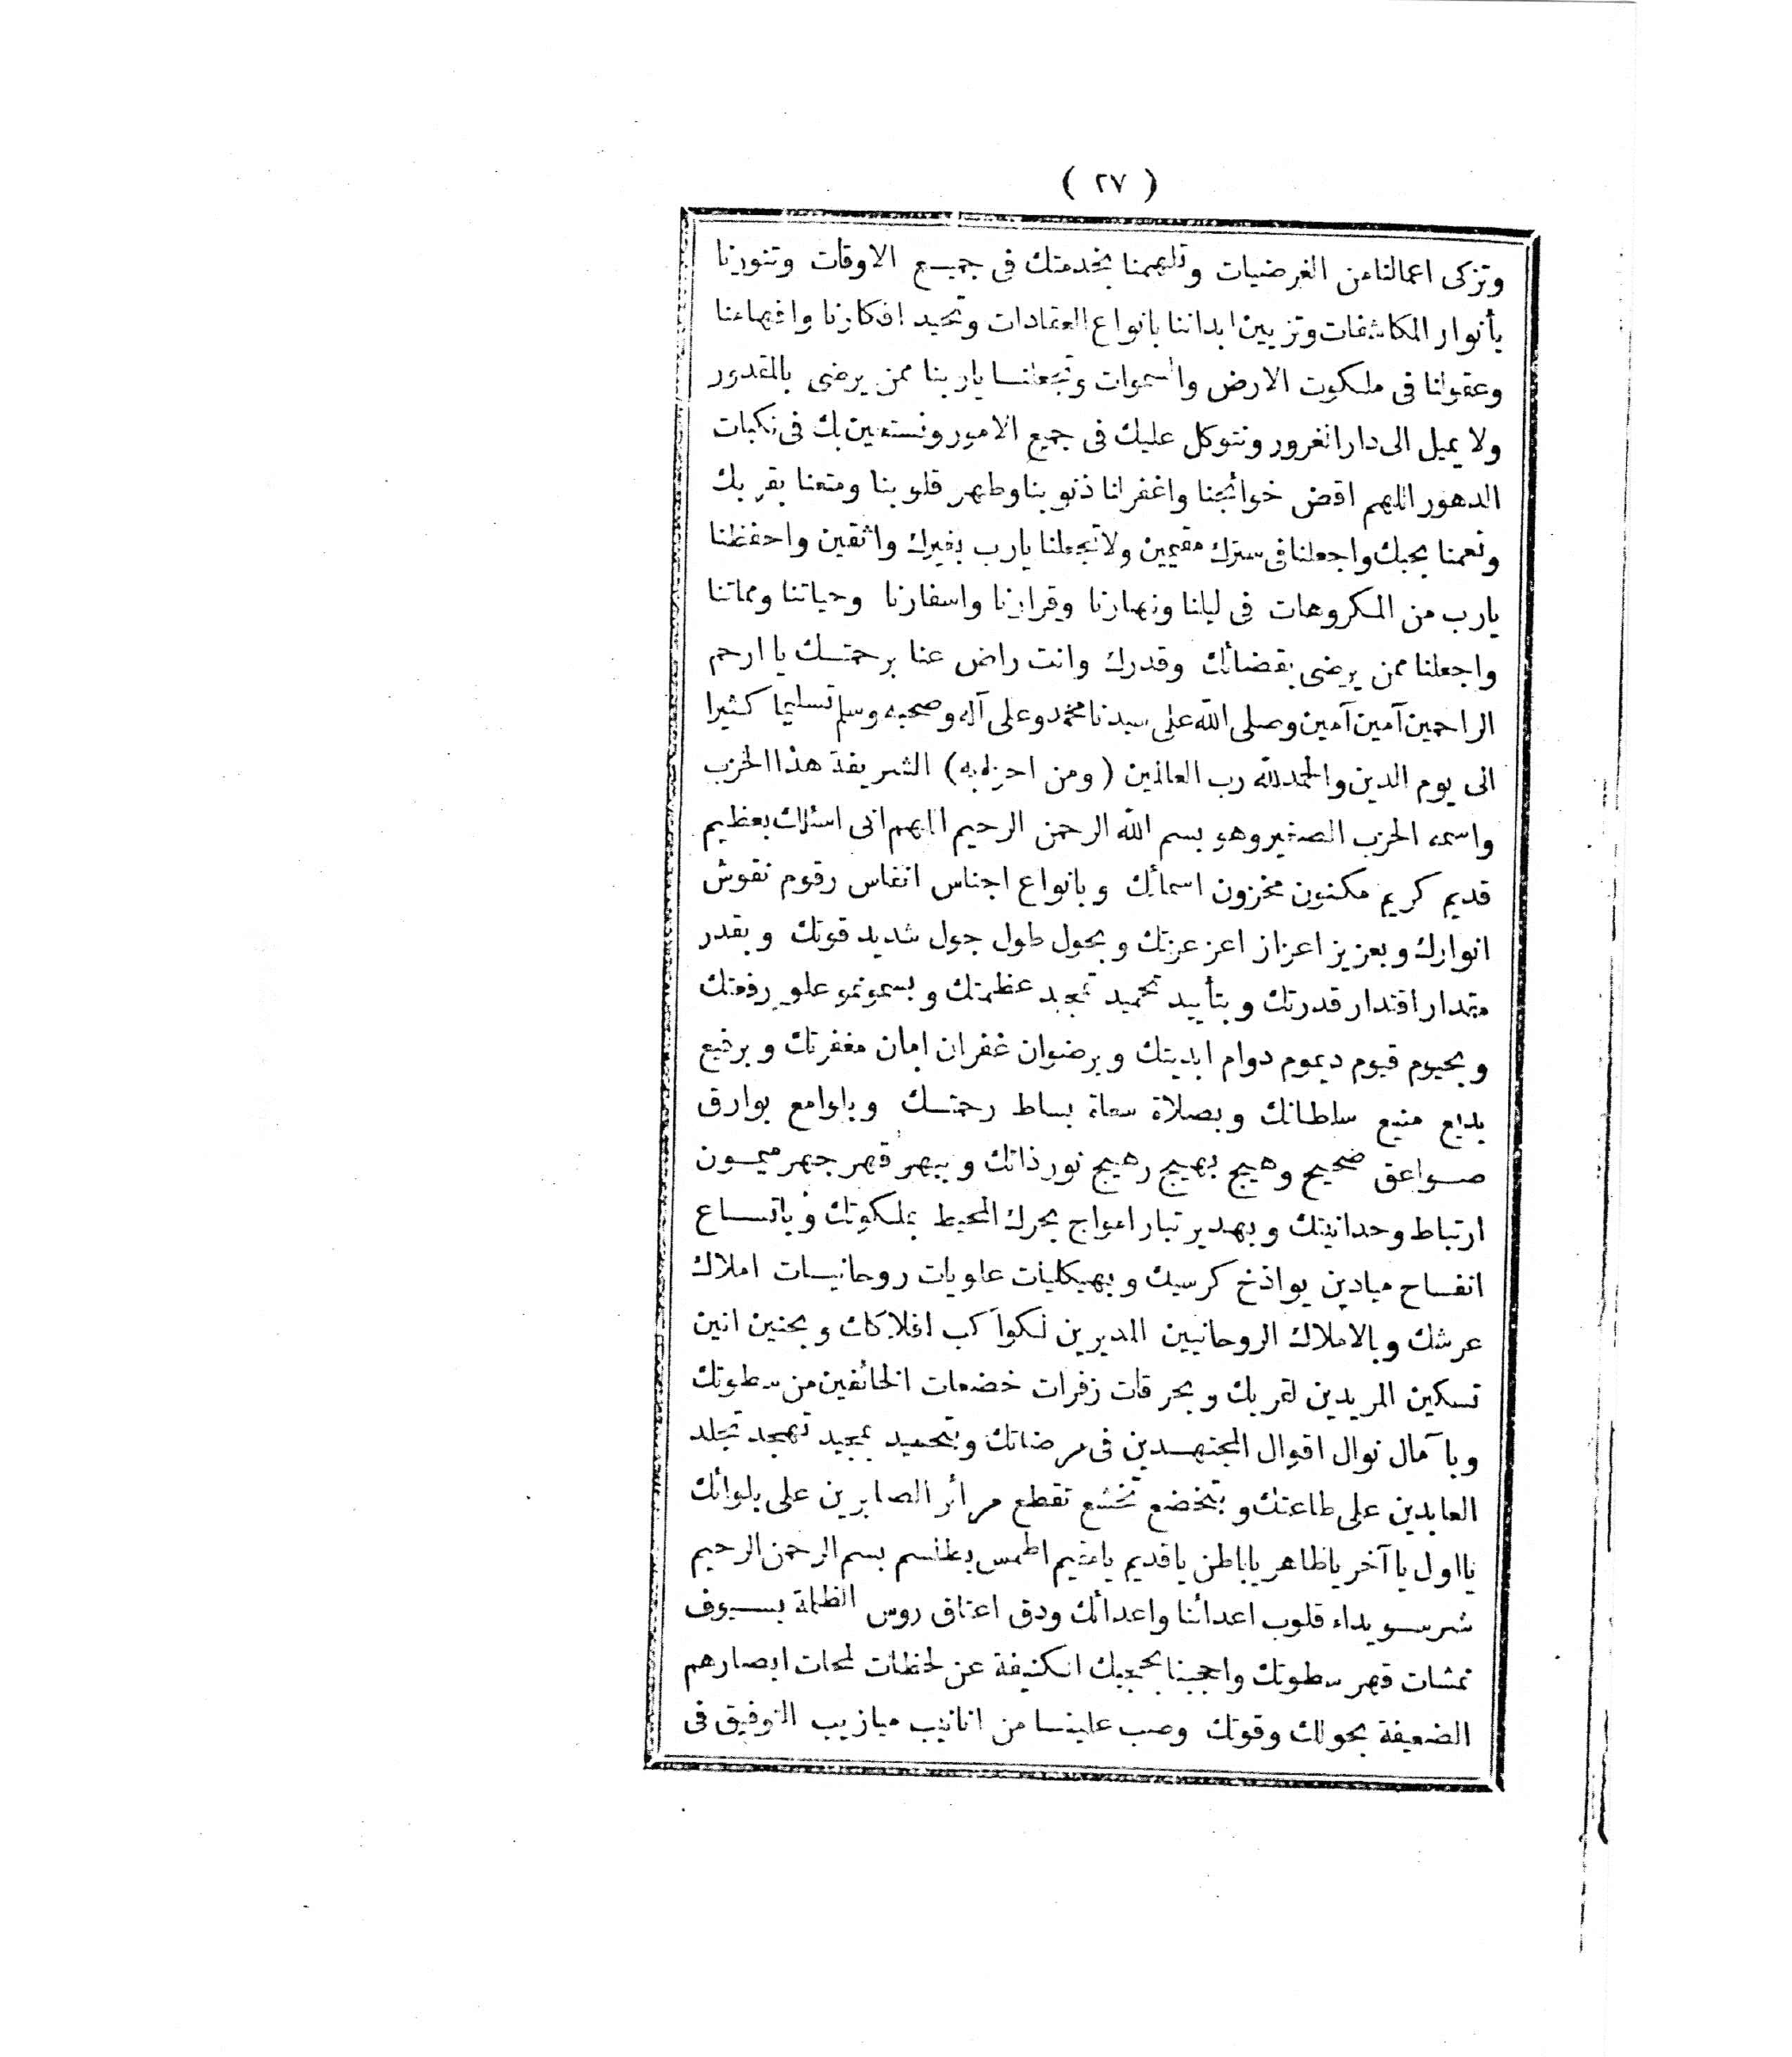 ( ٢٧ )
وتزكى اعمالنا من الغرضيات وتلهمنا بخدمتك فى جميع الاوقات وتنورنا
بأنوار المكاشفات وتزيين ابداننا بانواع العقادات وتحيد افكارنا وافهامنا
وعقولنا فى ملكوت الارض والسموات وتجعلنا ياربنا ممن يرضى بالمقدور
ولا يميل الى دار الغرور ونتوكل عليك فى جميع الامور ونستعين بك فى نكبات
الدهور اللهم اقض حوائجنا واغفرلنا ذنوبنا وطهر قلوبنا ومتعنا بقربك
ونعمنا بحبك واجعلنا فى سترك مقيمين ولا تجعلنا يارب بغيرك واثقين واحفظنا
يارب من المكروهات فى ليلنا ونهارنا وقرارنا واسفارنا وحياتنا ومماتنا
واجعلنا ممن يرضى بقضائك وقدرك وانت راض عنا برحمتك يا ارحم
الراحمين آمين آمين وصلى الله على سيدنا محمد وعلى آله وصحبه وسلم تسليما كثيرا
الى يوم الدين والحمد لله رب العالمين (ومن احزابه) الشريفة هذا الحزب
واسمه الحزب الصغير وهو بسم الله الرحمن الرحيم اللهم انى اسئلك بعظيم
قديم كريم مكنون مخزون اسمائك وبانواع اجناس انفاس رقوم نقوش
انوارك وبعزيز اعزاز اعز عزتك وبحول طول جول شديد قوتك وبقدر
مقدار اقتدار قدرتك وبتأييد تحميد تمجيد عظمتك وبسمو نمو علو رفعتك
وبحيوم قيوم ديموم دوام ابديتك وبرضوان غفران امان مغفرتك وبرفيع
بديع منيع سلطانك وبصلاة سعاة بساط رحمتك وبلوامع بوارق
صواعق ضجيج وهيج بهيج رهيج نور ذاتك وببهر قهر جهر ميمون
ارتباط وحدانيتك وبهدير تيار امواج بحرك المحيط بملكوتك وباتساع
انفساح ميادين بواذخ كرسيك وبهيكليات علويات روحانيات املاك
عرشك وبالاملاك الروحانيين المديرين لكواكب افلاكك وبحنين انين
تسكين المريدين لقربك وبحرقات زفرات خضعات الخائفين من سطوتك
وبآمال نوال اقوال المجتهدين فى مرضاتك وبتحميد تمجيد تهجد تجلد
العابدين على طاعتك وبتخضع تخشع تقطع مرائر الصابرين على بلوائك
يا اول يا آخر يا ظاهر يا باطن يا قديم يا مقيم اطمس بطلسم بسم الرحمن الرحيم
شر سويداء قلوب اعدائنا واعدائك ودق اعناق روس الظلمة بسيوف
نمشات قهر سطوتك واحجبنا بحجبك الكثيفة عن لحظات لمحات ابصارهم
الضعيفة بحولك وقوتك وصب علينا من انابيب ميازيب التوفيق فى